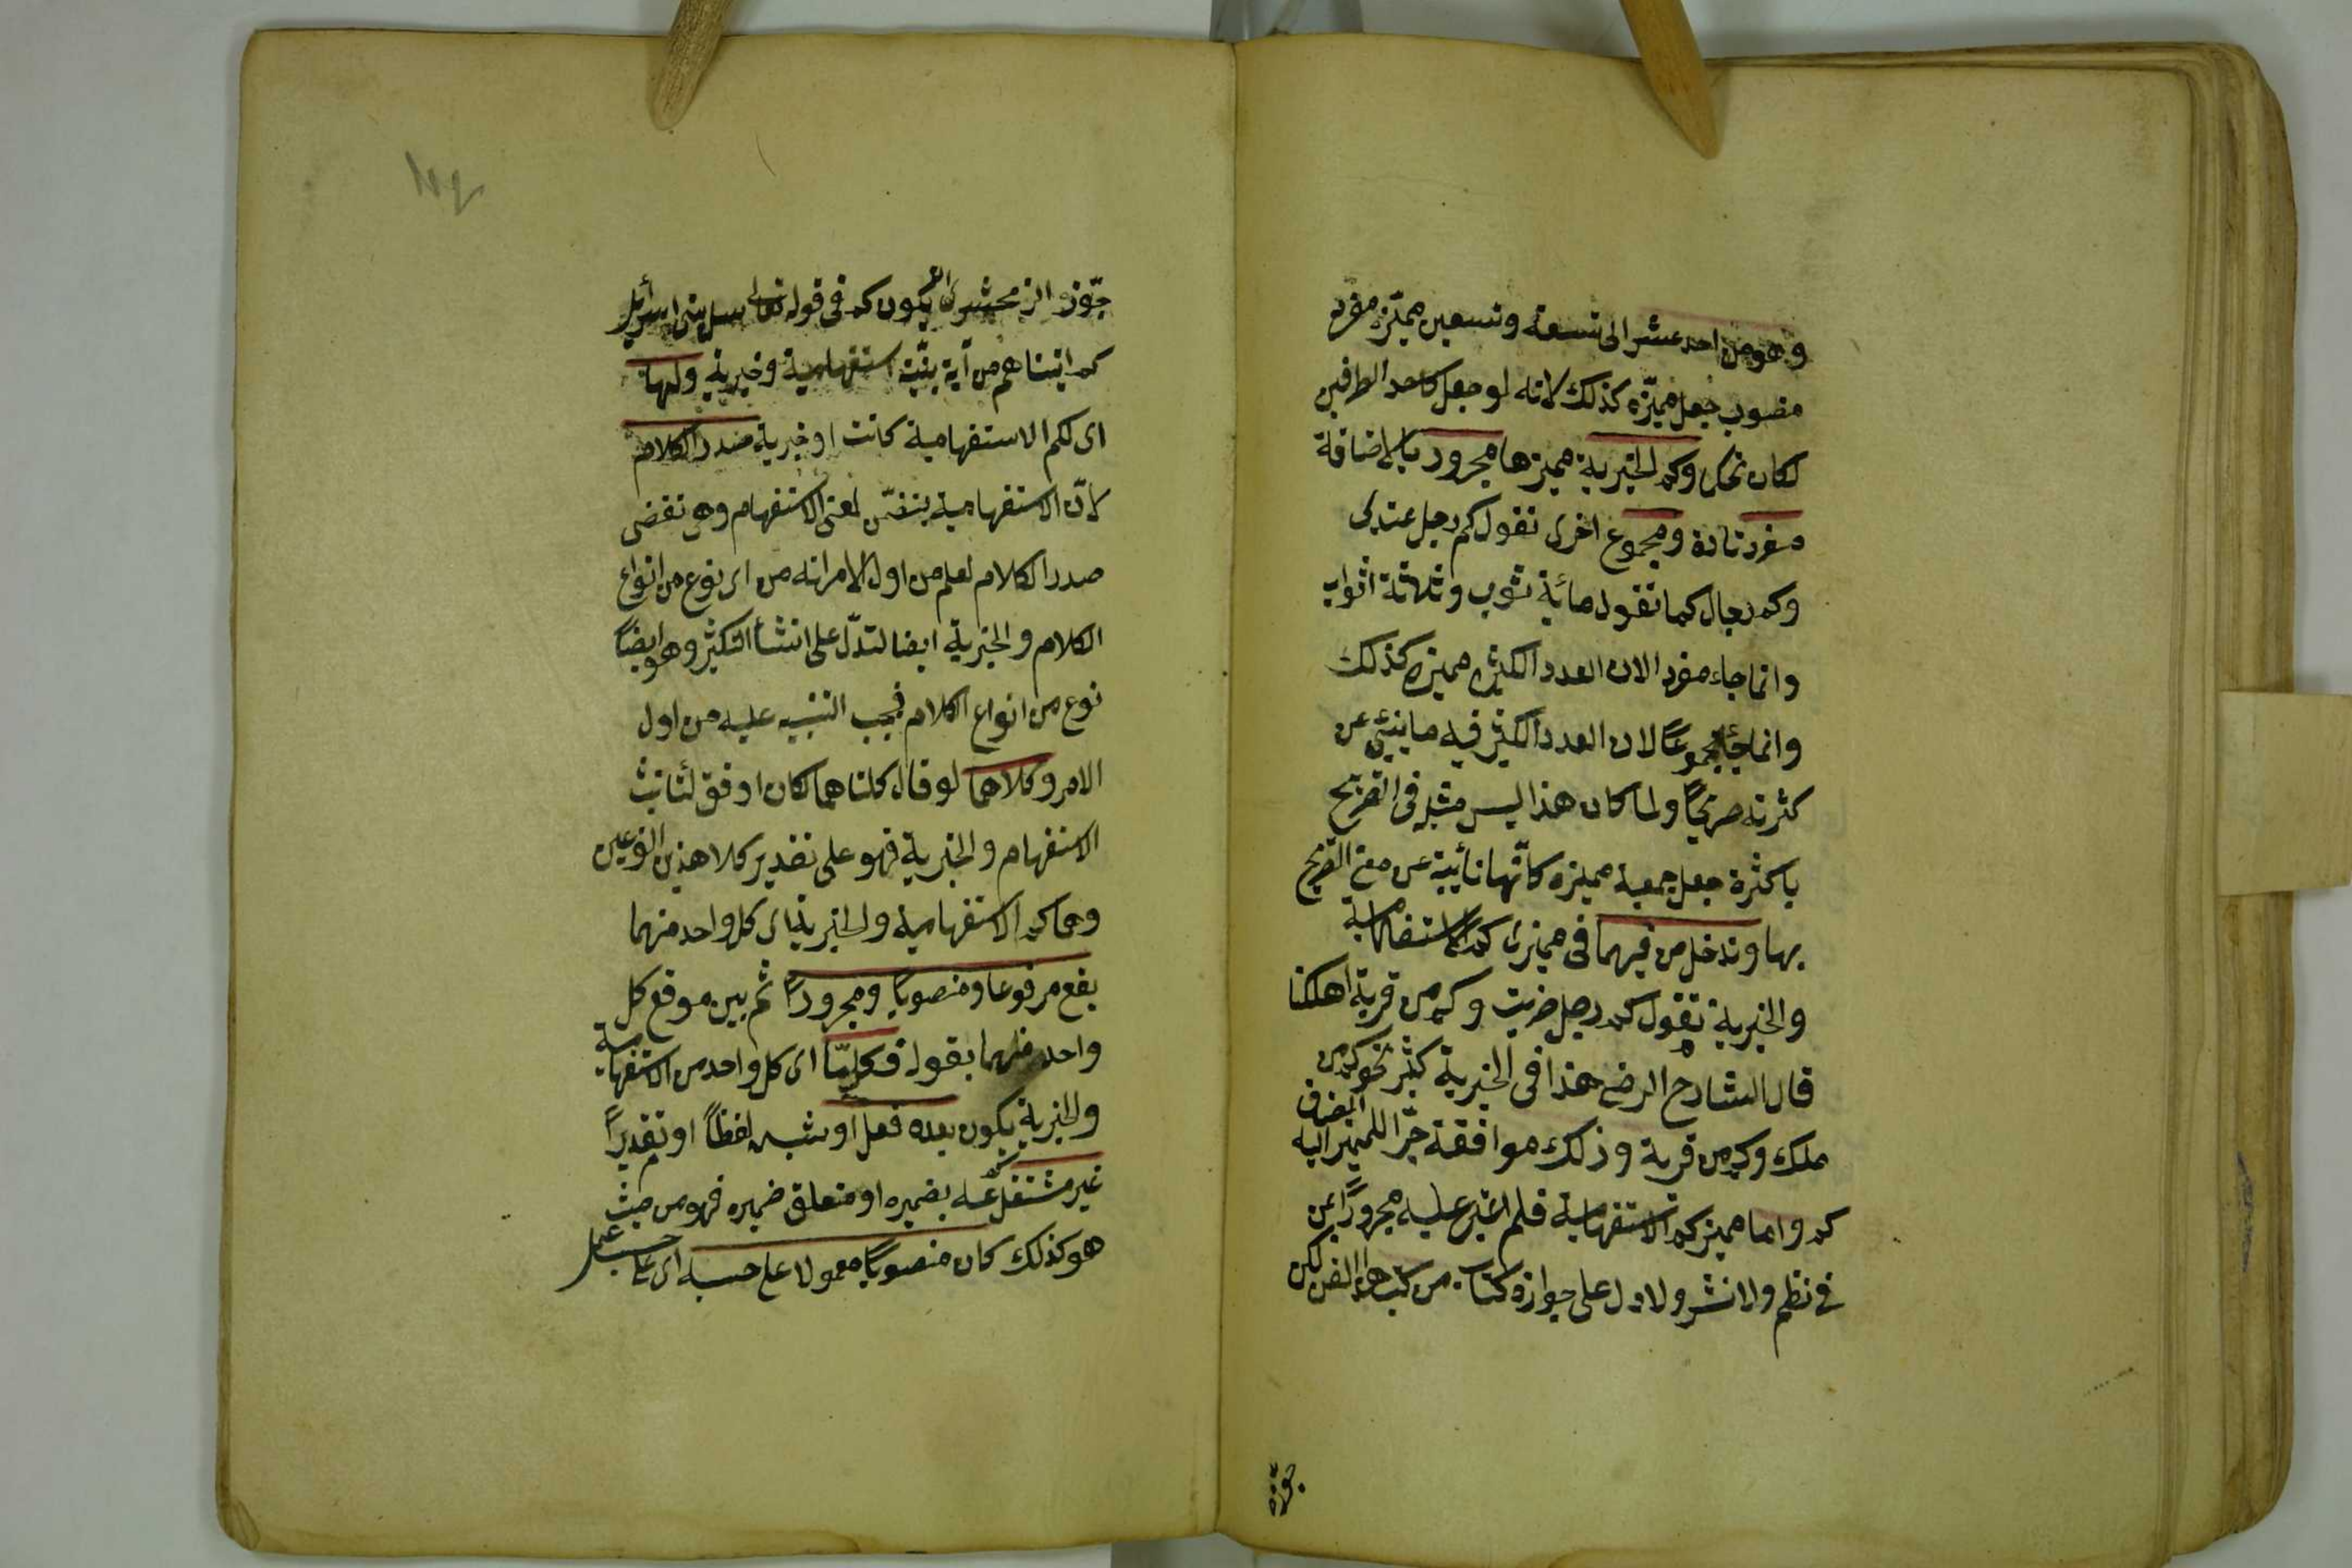 وهو من احد عشر الى تسعة وتسعين مميّزه مفرد
منصوب جعل مميّزه كذلك لانه لو جعل كاحد الطرفين
لكان تحكم وكم الخبرية مميزها مجرور بالاضافة
مفرد تارة ومجموع اخرى تقول كم رجل عندى
وكم رجال كما تقول مائة ثوب وثلثة اثواب
وانما جاء مفردا لان العدد الكثير مميزه كذلك
وانما جاء مجموعًا لان العدد الكثير فيه ما ينبئ عن
كثرته صريحًا ولما كان هذا ليس مثله فى التصريح
بالكثرة جعل جمعية مميزه كانّها نائبة عن معنى التصريح
بها وتدخل من فيهما فى مميزى كم الاستفهامية
والخبرية تقول كم رجل ضربت وكم من قرية اهلكنا
قال الشارح الرضى هذا فى الخبرية كثير نحو كم من
ملك وكم من قرية وذلك موافقة جرّا للمميز المضاف اليه
كم واما مميز كم الاستفهامية فلم اعثر عليه مجرورًا عن
فى نظم ولا نثر ولا دل على جوازه كتاب من كتب هذا الفن لكن
جوّز
جوّز الزمخشرى ان يكون كم فى قوله تعالى سل بنى اسرائيل
كم اتيناهم من آية بيّنة استفهامية وخبرية ولهما
اى لكم الاستفهامية كانت او خبرية صدر الكلام
لانّ الاستفهامية يتضمّن لمعنى الاستفهام وهى تقتضى
صدر الكلام ليعلم من اول الامر انه من اى نوع من انواع
الكلام والخبرية ايضا لتدلّ على انشاء التكثير وهو ايضًا
نوع من انواع الكلام فيجب التنبيه عليه من اول
الامر وكلاهما لو قال كلتاهما لكان اوفق لتانيث
الاستفهام والخبرية فهو على تقدير كلا هذين النوعين
وهما كم الاستفهامية والخبرية اى كل واحد منهما
يقع مرفوعا ومنصوبًا ومجرورًا ثم بين موقع كل
واحد منهما بقوله فكل ما اى كل واحد من الاستفهامية
والخبرية يكون بعده فعل او شبهه لفظًا او تقديرًا
غير مشتغل عنه بضميره او متعلق ضميره فهو من حيث
هو كذلك كان منصوبًا معمولا على حسبه اى على حسب عمل